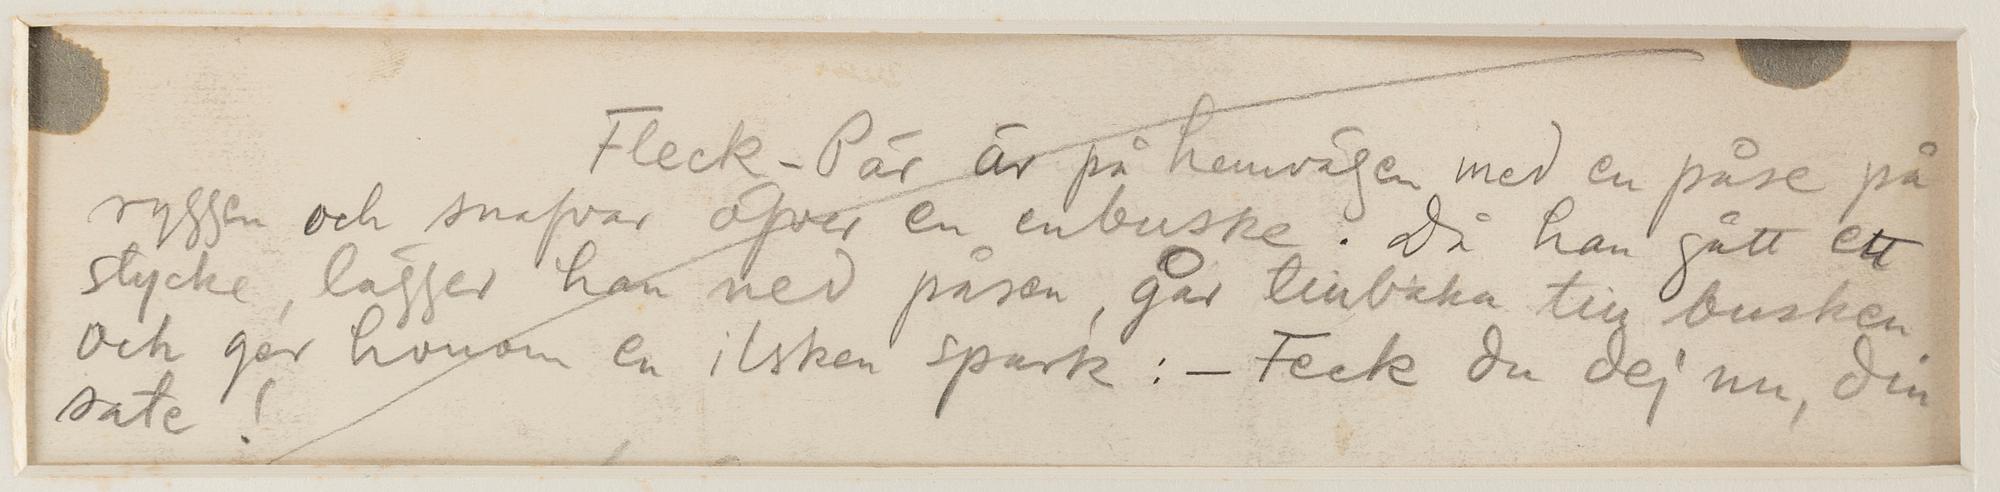 Fleck-Pär är på hemvägen med en påse på
ryggen och snafvar öfver en enbuske. Då han gått ett
stycke, lägger han ned påsen, går tillbaka till busken
och ger honom en ilsken spark: - Feck du dej nu, din
sate!